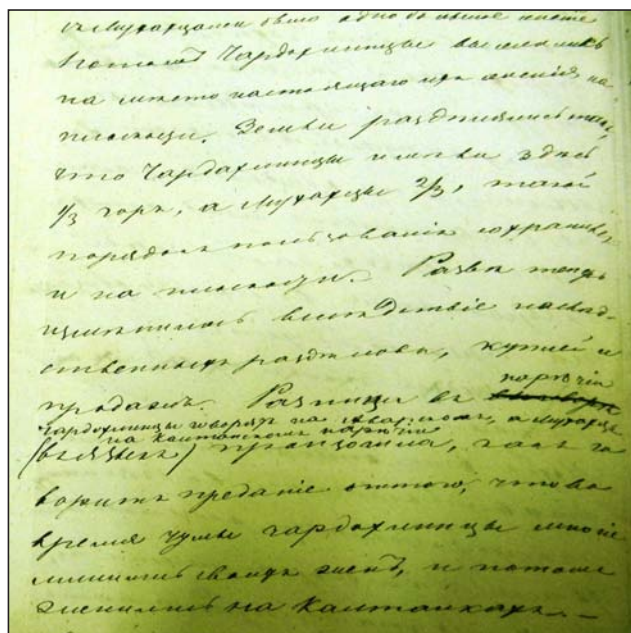 съ Мухахцами было одно большое
Потомъ Чардахлинцы выселились
на мѣсто настоящаго ихъ селенія, на
плоскости. Земли раздѣлялись такъ,
что Чардахлинцы имѣли здѣсь
1/3 горъ, а Мухахцы 2/3, такой
порядокъ пользованія сохранился
и на плоскости. Развѣ теперь
измѣнилось вслѣдствіе наслѣд-
ственныхъ раздѣловъ, куплей и
продажъ. Разница въ нарѣчіи
чардахлинцы говорятъ на аварскомъ, а Мухахцы
на нарѣчіи
(въ языкѣ) произошла, какъ го
воритъ преданіе оттого, что во
время чумы чардахлинцы многіе
лишились своихъ женъ, и потомъ
женились на